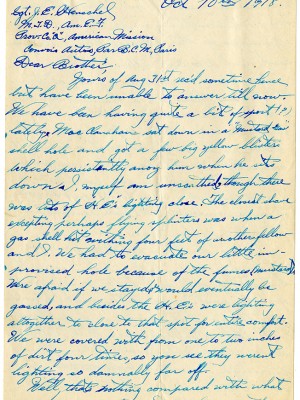 Oct 10th 1918.
Sgt. J. E. Henschel
M. T. D., Am. E. F.
Prov. Co. "A", American Mission
Convois Autos, Par B.C.M., Paris
Dear Brother:
Yours of Aug 31st rec'd sometime since
but have been unable to answer till now.
We have ban having quite a bit of sport (?)
lately. Mac sat down in a "mustard Gas"
shell hole and got a few big yellow blisters
which persistantly anoy him when he sits
down. I, myself am unscathed, though there
was lots of H. E's lighting close. The closest have
excepting perhaps flying splinters was when a
gas shell hit within four feet of another fellow
and I. We had to evacuate our little im-
provised hole because of the fumes, (mustard)
Were afraid if we stayed would eventually be
gassed, and besides the H. E's were lighting
altogether to close to that spot for entire comfort.
We were covered with from one to two inches
of dirt four times, so you see they weren't
lighting so damnably far off.
Well, that's nothing compared with what